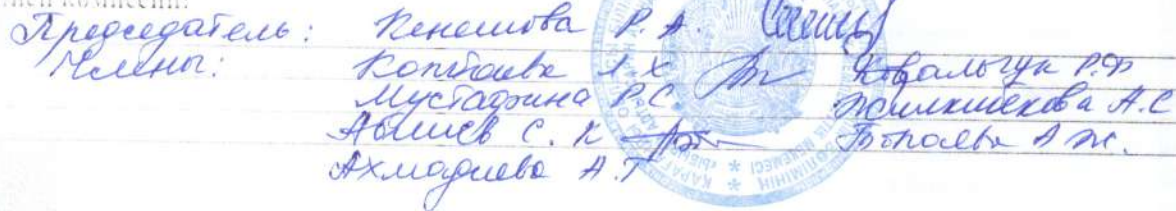 комиссии:
Председатель: Кенешова Р. А.
Члены: Копбаева Л. Х Ковальчук Р.Ф
Мустафина Р.С. Жилкишекова А.С
Абишев С. К
Ахмадиева А.Т